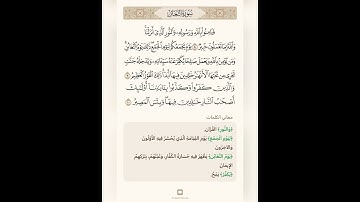 سورة التغابن
فَـَٔامِنُوا۟ بِٱللَّهِ وَرَسُولِهِۦ وَٱلنُّورِ ٱلَّذِىٓ أَنزَلْنَا
وَٱللَّهُ بِمَا تَعْمَلُونَ خَبِيرٌ ٨ يَوْمَ يَجْمَعُكُمْ لِيَوْمِ ٱلْجَمْعِ ذَٰلِكَ يَوْمُ ٱلتَّغَابُنِ
وَمَن يُؤْمِنۢ بِٱللَّهِ وَيَعْمَلْ صَـٰلِحًا يُكَفِّرْ عَنْهُ سَيِّـَٔاتِهِۦ وَيُدْخِلْهُ جَنَّـٰتٍ
تَجْرِى مِن تَحْتِهَا ٱلْأَنْهَـٰرُ خَـٰلِدِينَ فِيهَآ أَبَدًا ذَٰلِكَ ٱلْفَوْزُ ٱلْعَظِيمُ ٩
وَٱلَّذِينَ كَفَرُوا۟ وَكَذَّبُوا۟ بِـَٔايَـٰتِنَآ أُو۟لَـٰٓئِكَ
أَصْحَـٰبُ ٱلنَّارِ خَـٰلِدِينَ فِيهَا وَبِئْسَ ٱلْمَصِيرُ ١٠
معاني الكلمات
﴿وَالنُّورِ﴾ القُرْآنِ.
﴿لِيَوْمِ الْجَمْعِ﴾ يَوْمِ القِيَامَةِ الَّذِي يُحْشَرُ فِيهِ الأَوَّلُونَ
وَالآخِرُونَ.
﴿يَوْمُ التَّغَابُنِ﴾ يَظْهَرُ فِيهِ خَسَارَةُ الكُفَّارِ، وَغَبْنُهُمْ، بِتَرْكِهِمُ
الإِيمَانَ.
﴿يُكَفِّرْ﴾ يَمْحُ.